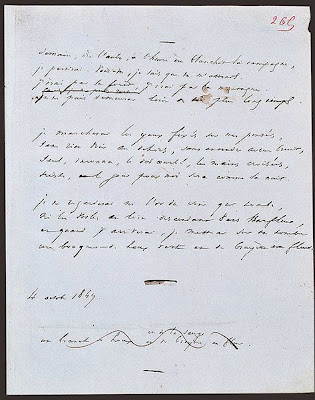 265
demain, dès l'aube, à l'heure où blanchit la campagne,
je partirai. Vois-tu, je sais que tu m'attends.
j'irai par la forêt, j'irai par la montagne.
je ne puis demeurer loin de toi plus longtemps.
je marcherai les yeux fixés sur mes pensées,
sans rien voir au dehors, sans entendre aucun bruit,
seul, inconnu, le dos courbé, les mains croisées,
triste, et le jour pour moi sera comme la nuit.
je ne regarderai ni l'or du soir qui tombe,
ni les voiles au loin descendant vers Harfleur,
et quand j'arriverai, je mettrai sur ta tombe
un bouquet de houx vert et de bruyère en fleur.
4 octobre 1847
un de houx et de bruyère en fleur.